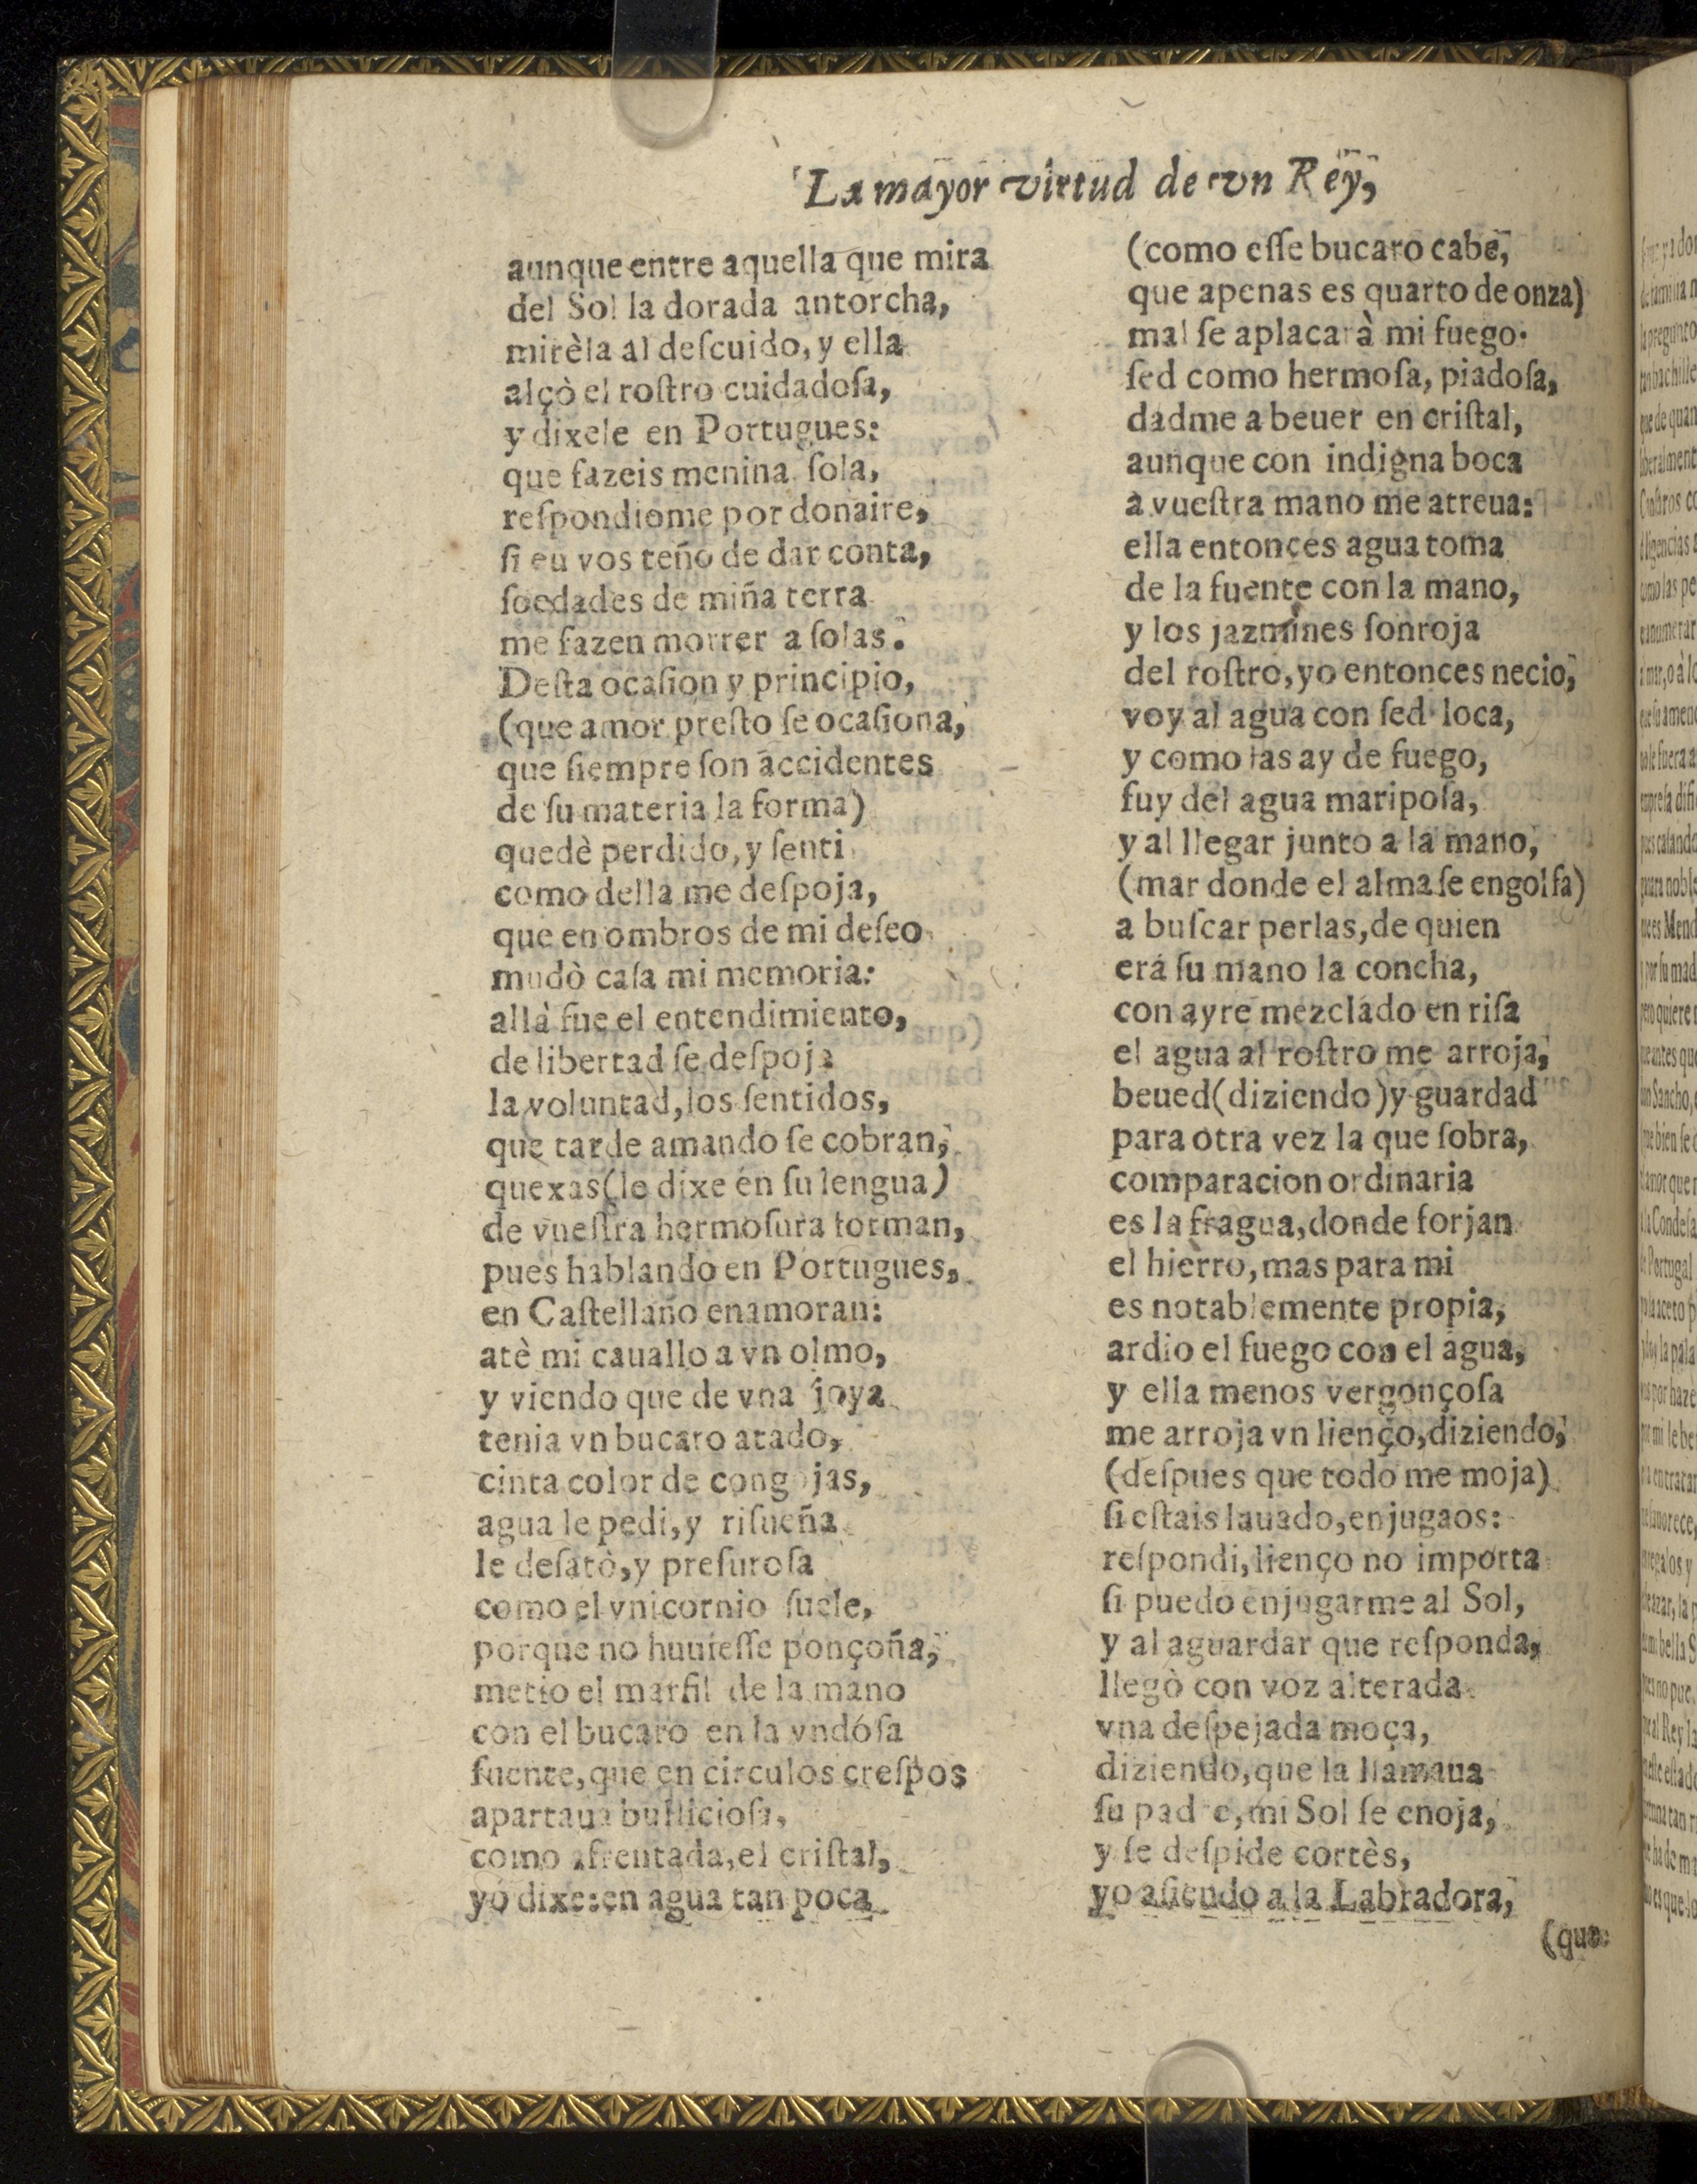 La mayor virtud de vn Rey,
aunque entre aquella que mira
del Sol la dorada antorcha,
mirèla al deſcuido, y ella
alçò el roſtro cuidadoſa,
y dixele en Portugues:
que fazeis menina ſola,
reſpondiome por donaire,
ſi eu vos teño de dar conta,
ſoedades de miña terra
me fazen morrer a ſolas.
Deſta ocaſion y principio,
(que amor preſto ſe ocaſiona,
que ſiempre ſon accidentes
de ſu materia la forma)
quedè perdido, y ſenti
como della me deſpoja,
que en ombros de mi deſeo
mudò caſa mi memoria:
allà fue el entendimiento,
de libertad ſe deſpoja
la voluntad, los ſentidos,
que tarde amando ſe cobran,
quexas (le dixe en ſu lengua)
de vueſtra hermoſura forman,
pues hablando en Portugues,
en Caſtellano enamoran:
atè mi cauallo a vn olmo,
y viendo que de vna joya
tenia vn bucaro atado,
cinta color de congojas,
agua le pedi, y riſueña
le deſatò, y preſuroſa
como el vnicornio ſuele,
porque no huuieſſe ponçoña,
metio el marfil de la mano
con el bucaro en la vndóſa
fuente, que en circulos creſpos
apartaua bullicioſa,
como afrentada, el criſtal,
yo dixe: en agua tan poca
(como eſſe bucaro cabe,
que apenas es quarto de onza)
mal ſe aplacarà mi fuego.
ſed como hermoſa, piadoſa,
dadme a beuer en criſtal,
aunque con indigna boca
à vueſtra mano me atreua:
ella entonces agua toma
de la fuente con la mano,
y los jazmines ſonroja
del roſtro, yo entonces necio,
voy al agua con ſed loca,
y como las ay de fuego,
fuy del agua maripoſa,
y al llegar junto a la mano,
(mar donde el alma ſe engolfa)
a buſcar perlas, de quien
era ſu mano la concha,
con ayre mezclado en riſa
el agua al roſtro me arroja,
beued (diziendo) y guardad
para otra vez la que ſobra,
comparacion ordinaria
es la fragua, donde forjan
el hierro, mas para mi
es notablemente propia,
ardio el fuego con el agua,
y ella menos vergonçoſa
me arroja vn lienço, diziendo,
(deſpues que todo me moja)
ſi eſtais lauado, enjugaos:
reſpondi, lienço no importa
ſi puedo enjugarme al Sol,
y al aguardar que reſponda,
llegò con voz alterada
vna deſpejada moça,
diziendo, que la llamaua
ſu padre, mi Sol ſe enoja,
y ſe deſpide cortès,
yo aſiendo a la Labradora,
(que